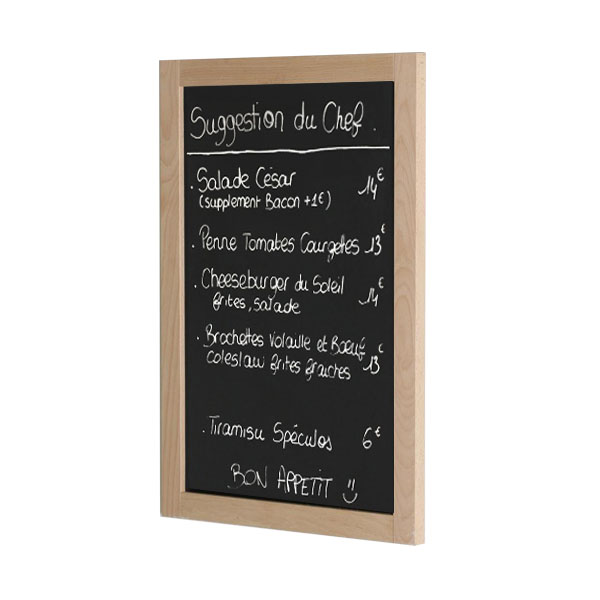 Suggestion du Chef.
. Salade César 14€
(supplement Bacon +1€)
. Penne Tomates Courgettes 13€
. Cheeseburger du Soleil
frites, salade 14€
. Brochettes Volaille et Bœuf
coleslaw frites fraiches 13€
. Tiramisu Spéculos 6€
BON APPETIT :)